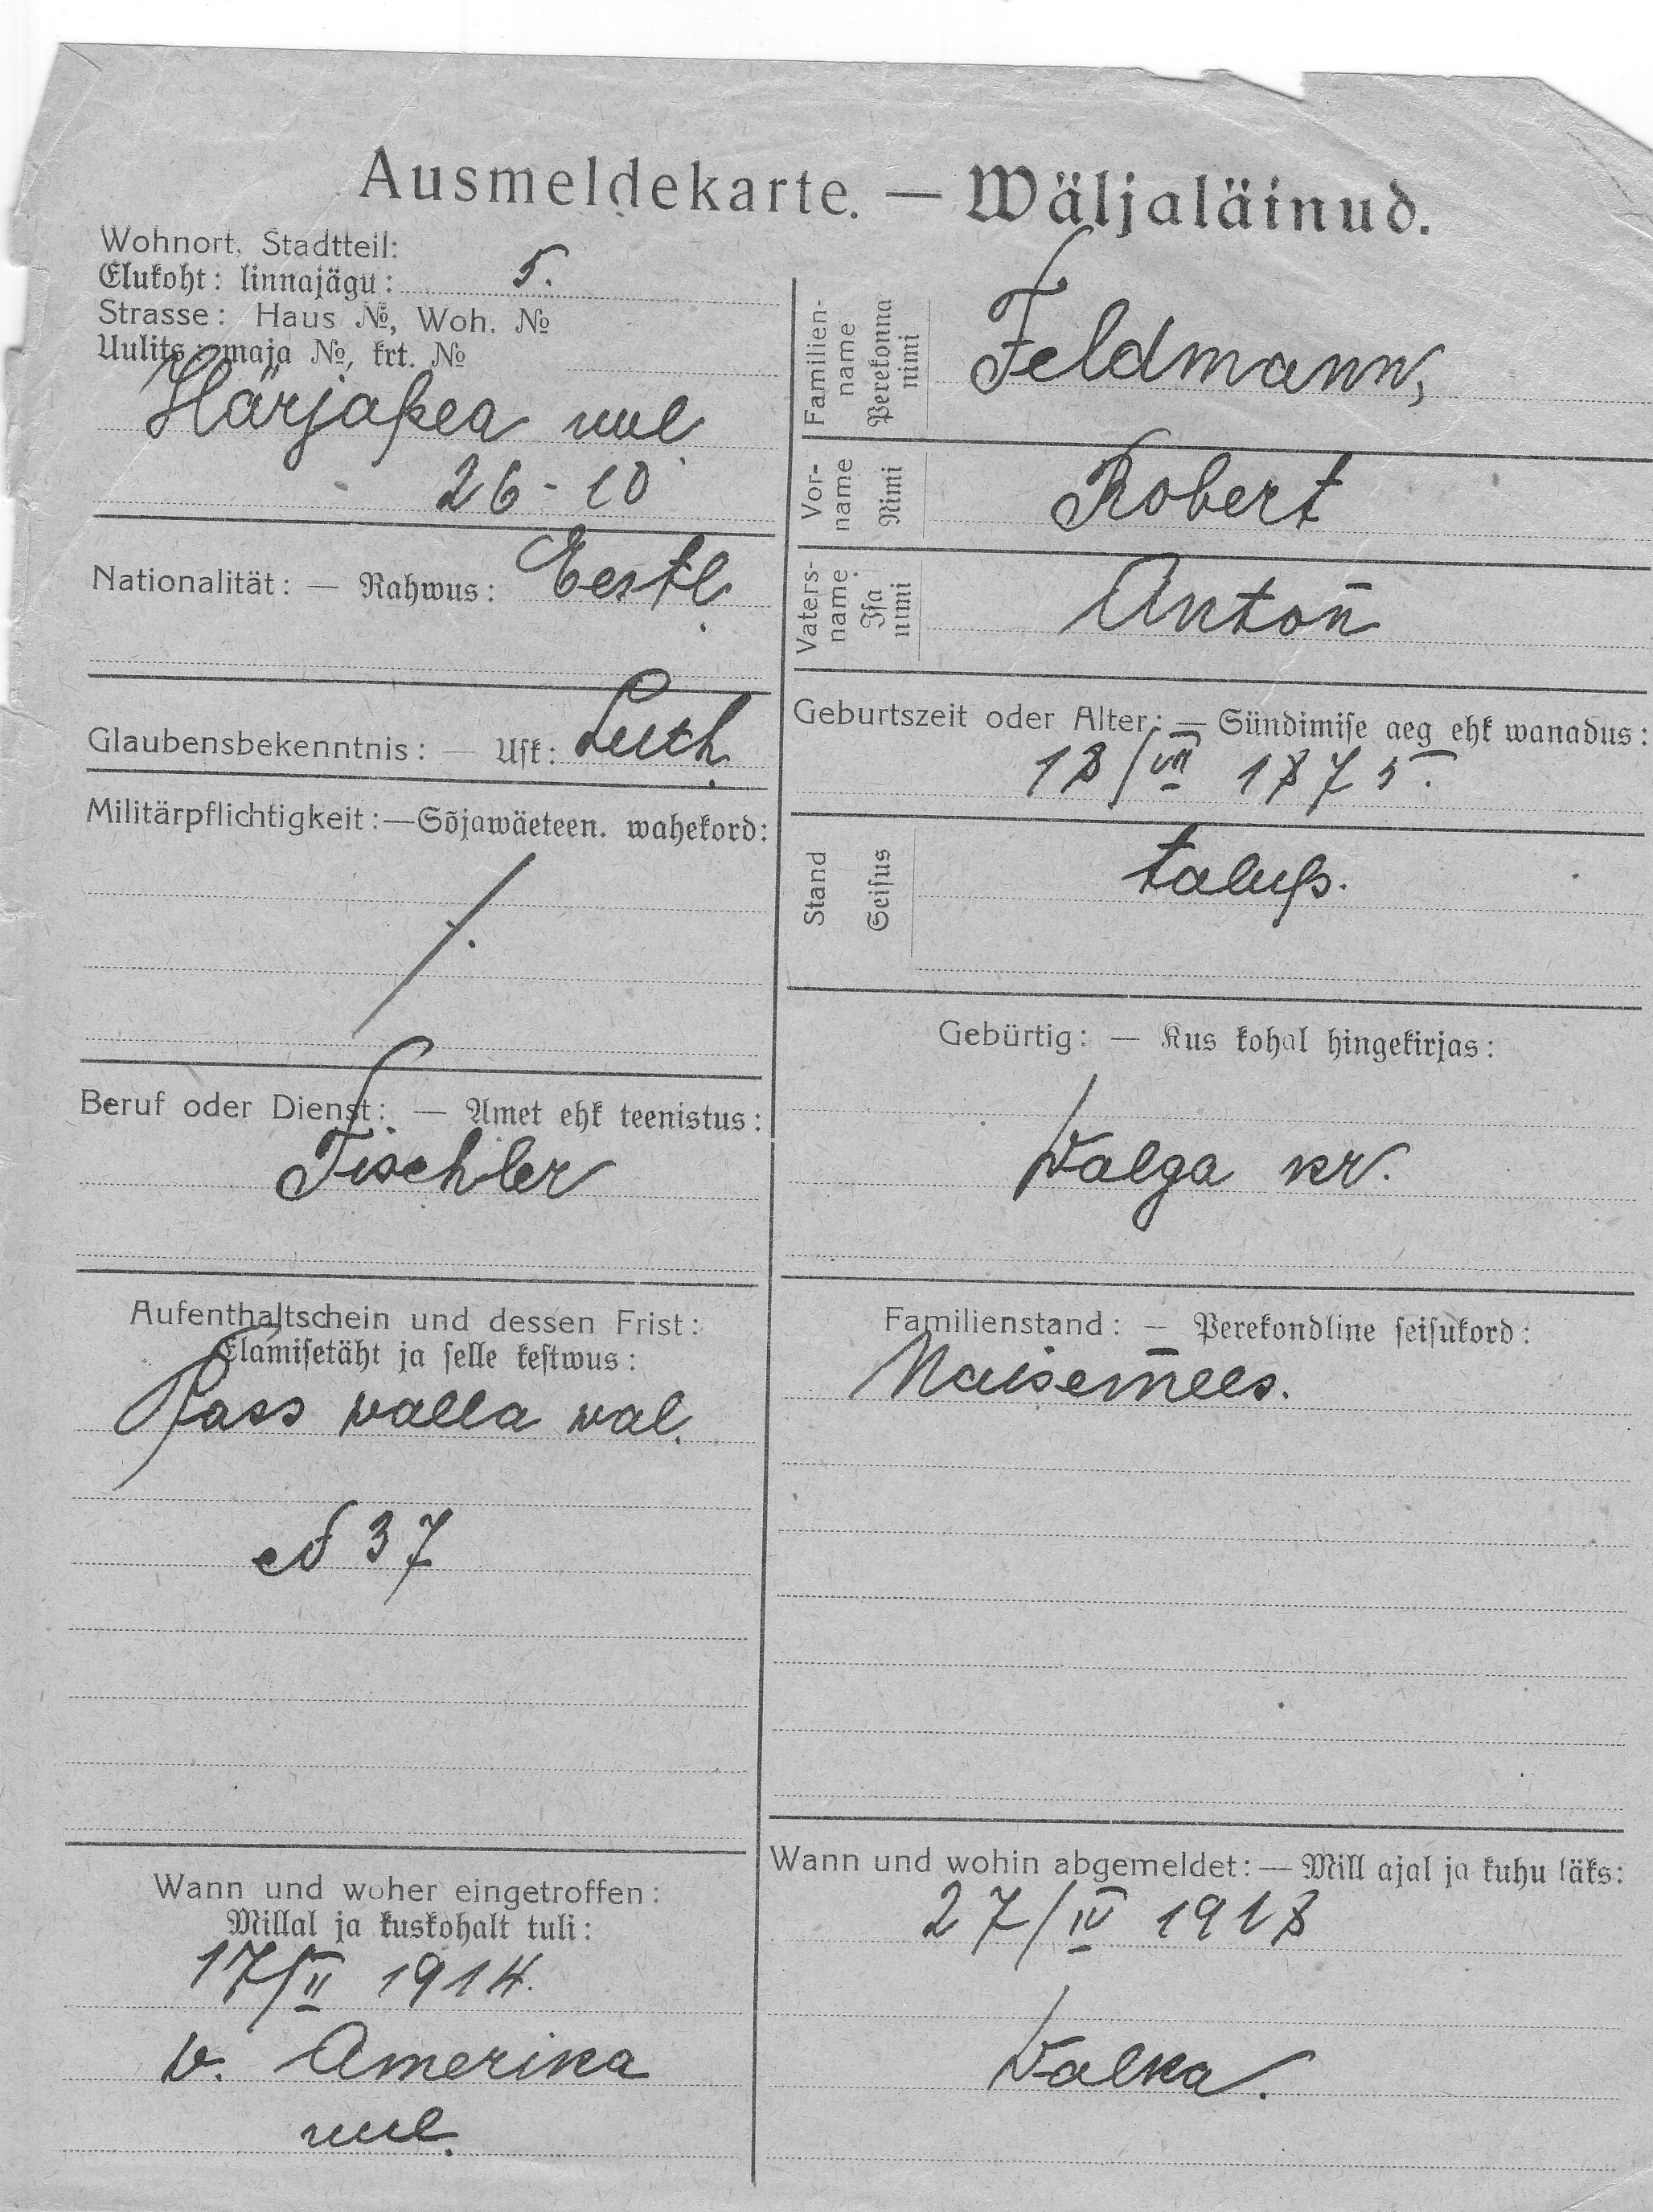 Ausmeldekarte. — Wäljaläinud.
Wohnort, Stadtteil:
Elukoht: linnajägu: 5.
Strasse: Haus №, Woh. №
Uulits: maja №, krt. №
Härjapea uul.
26-10
Nationalität: — Rahwus: Eestl.
Glaubensbekenntnis: — Usk: Luth.
Militärpflichtigkeit:—Sõjawäeteen. wahekord:
Beruf oder Dienst: — Amet ehk teenistus:
Tischler
Aufenthaltschein und dessen Frist:
Elamisetäht ja selle kestwus:
Pass walla wal.
№ 37
Wann und woher eingetroffen:
Millal ja kuskohalt tuli:
17/II 1914.
v. Amerika
uul.
Familien-
name
Perekonna
nimi
Feldmann,
Vor-
name
Nimi
Robert
Vaters-
name
Isa
nimi
Anton
Geburtszeit oder Alter: — Sündimise aeg ehk wanadus:
18/VII 1875.
Stand
Seisus
talup.
Gebürtig: — Kus kohal hingekirjas:
Walga kr.
Familienstand: — Perekondline seisukord:
Naisemees.
Wann und wohin abgemeldet: — Mill ajal ja kuhu läks:
27/IV 1918
Walka.